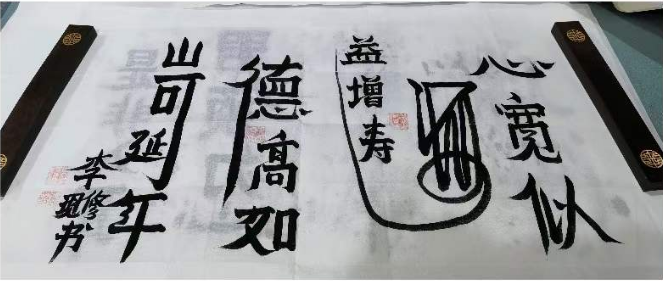 心宽似
益增寿
德高如
山可延年
李修书